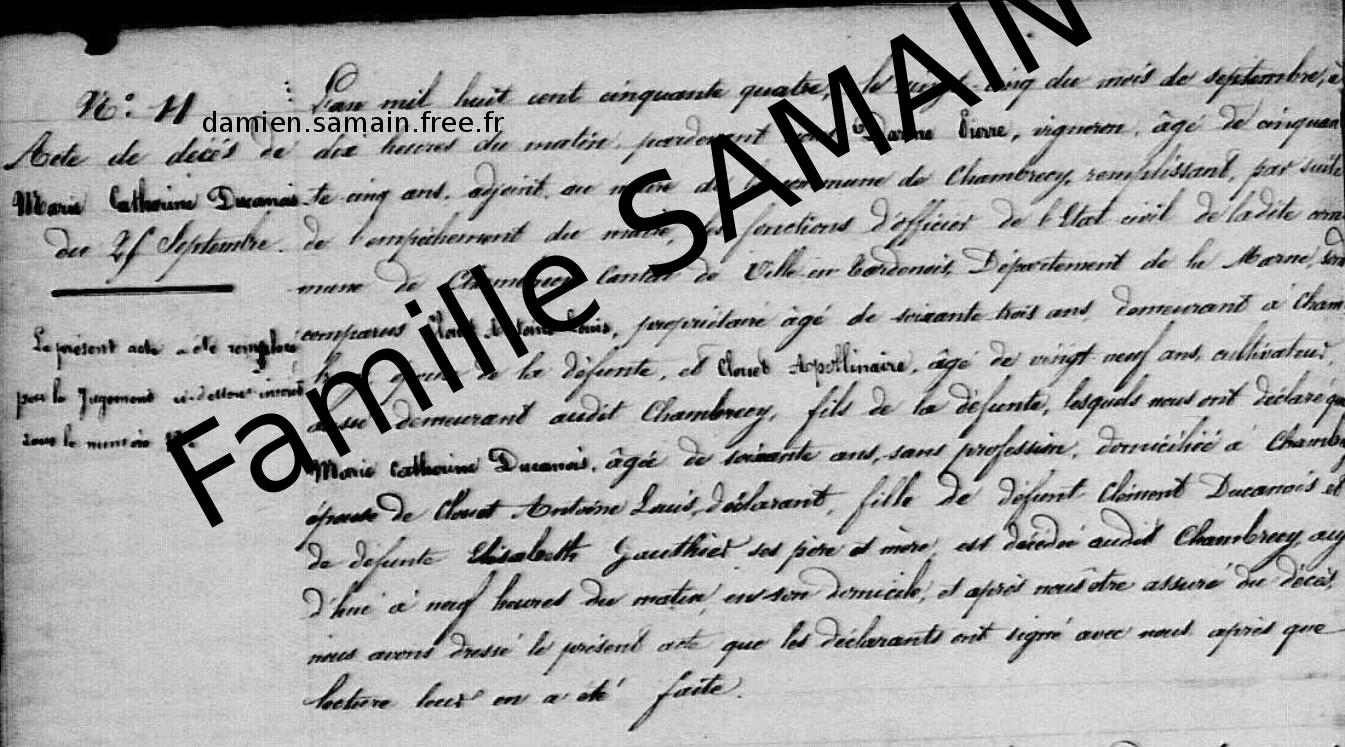 N.º 11
Acte de décès de
Marie Catherine Ducanois
du 25 Septembre.
Le présent acte a été remplacé
par le Jugement ci-dessous inscrit
sous le numéro
L'an mil huit cent cinquante quatre, le vingt-cinq du mois de septembre, à
dix heures du matin, pardevant nous Darme Pierre, vigneron, âgé de cinquan
te cinq ans, adjoint au maire de la commune de Chambrecy, remplissant, par suite
de l'empêchement du maire, les fonctions d'officier de l'Etat civil de ladite com
mune de Chambrecy Canton de Ville en Tardenois, Département de la Marne, sont
comparus Clouet Antoine Louis, propriétaire âgé de soixante trois ans, demeurant à Cham
époux de la défunte, et Clouet Apollinaire, âgé de vingt-neuf ans, cultivateur,
aussi demeurant audit Chambrecy, fils de la défunte, lesquels nous ont déclaré que
Marie Catherine Ducanois, âgée de soixante ans, sans profession, domiciliée à Chambr
épouse de Clouet Antoine Louis, déclarant, fille de défunt Clément Ducanois et
de défunte Elisabeth Gauthier ses père et mère, est décédée audit Chambrecy auj
d'hui à neuf heures du matin, en son domicile, et après nous être assuré du décès,
nous avons dressé le présent acte que les déclarants ont signé avec nous après que
lecture leur en a été faite.
damien.samain.free.fr
Famille SAMAIN